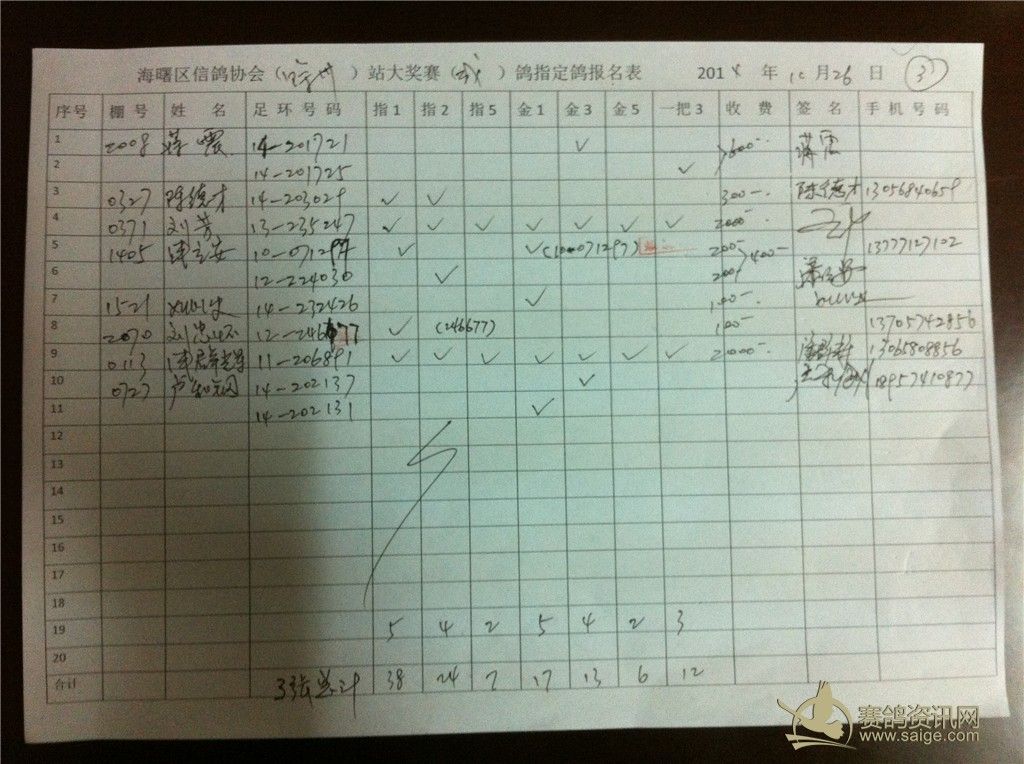 海曙区信鸽协会（徐州）站大奖赛（成）鸽指定鸽报名表 2014 年 10 月 26 日 3
序号 棚号 姓 名 足 环 号 码 指1 指2 指5 金1 金3 金5 一把3 收 费 签 名 手 机 号 码
1 2008 蒋震 14-201721 ✓ 600- 蒋震
2 14-201725 ✓
3 0327 陈德才 14-203029 ✓ ✓ 300-. 陈德才 13056840659
4 0371 刘芳 13-235247 ✓ ✓ ✓ ✓ ✓ ✓ ✓ 2000-
5 1405 10-071297 ✓ ✓ (10-071297) 200- 400- 13777127102
6 12-224030 ✓ 200-
7 1521 14-232426 ✓ 100-.
8 2070 刘忠 12-246677 ✓ (246677) 100- 13705742856
9 0113 11-206891 ✓ ✓ ✓ ✓ ✓ ✓ ✓ 2000-. 13065808856
10 0727 卢 14-202137 ✓ 18957410877
11 14-202131 ✓
12
13
14
15
16
17
18
19 5 4 2 5 4 2 3
20
合计 3张总计 38 24 7 17 13 6 12
赛鸽资讯网
www.saige.com